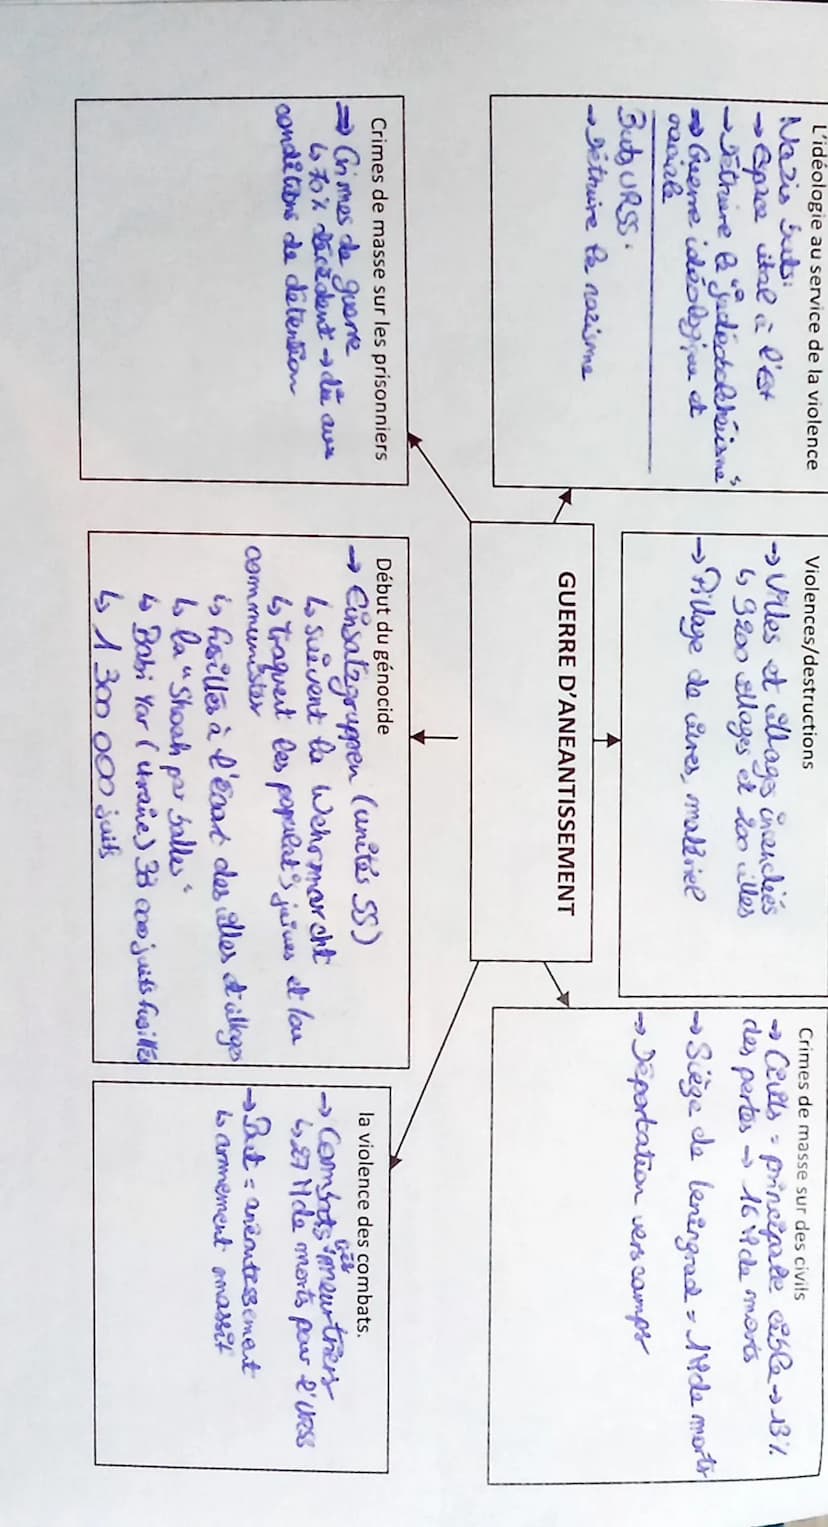 L'idéologie au service de la violence
Nazis buts:
→ Espace vital à l'Est
→ Détruire le "judéobolchévisme"
→ Guerre idéologique et
raciale
Buts URSS:
→ Détruire le nazisme
Violences/destructions
→ Villes et villages incendiés
↳ 9200 villages et 200 villes
→ Pillage de vivres, matériel
Crimes de masse sur des civils
→ Civils = principale cible → 13%
des pertes → 16 M de morts
→ Siège de Leningrad = 1M de morts
→ Déportation vers camps
GUERRE D'ANEANTISSEMENT
Crimes de masse sur les prisonniers
→ Crimes de guerre
↳ 70% décèdent → dû aux
conditions de détention
Début du génocide
→ Einsatzgruppen (unités SS)
↳ suivent la Wehrmarcht
↳ traquent les populat°s juives et/ou
communistes
↳ fusillés à l'écart des villes et villages
↳ la "Shoah par balles"
↳ Babi Yar (Ukraine) 33 000 juifs fusillés
↳ 1 300 000 juifs
la violence des combats.
→ Combats très meurtriers
↳ 27 M de morts pour l'URSS
→ But = anéantissement
↳ armement massif